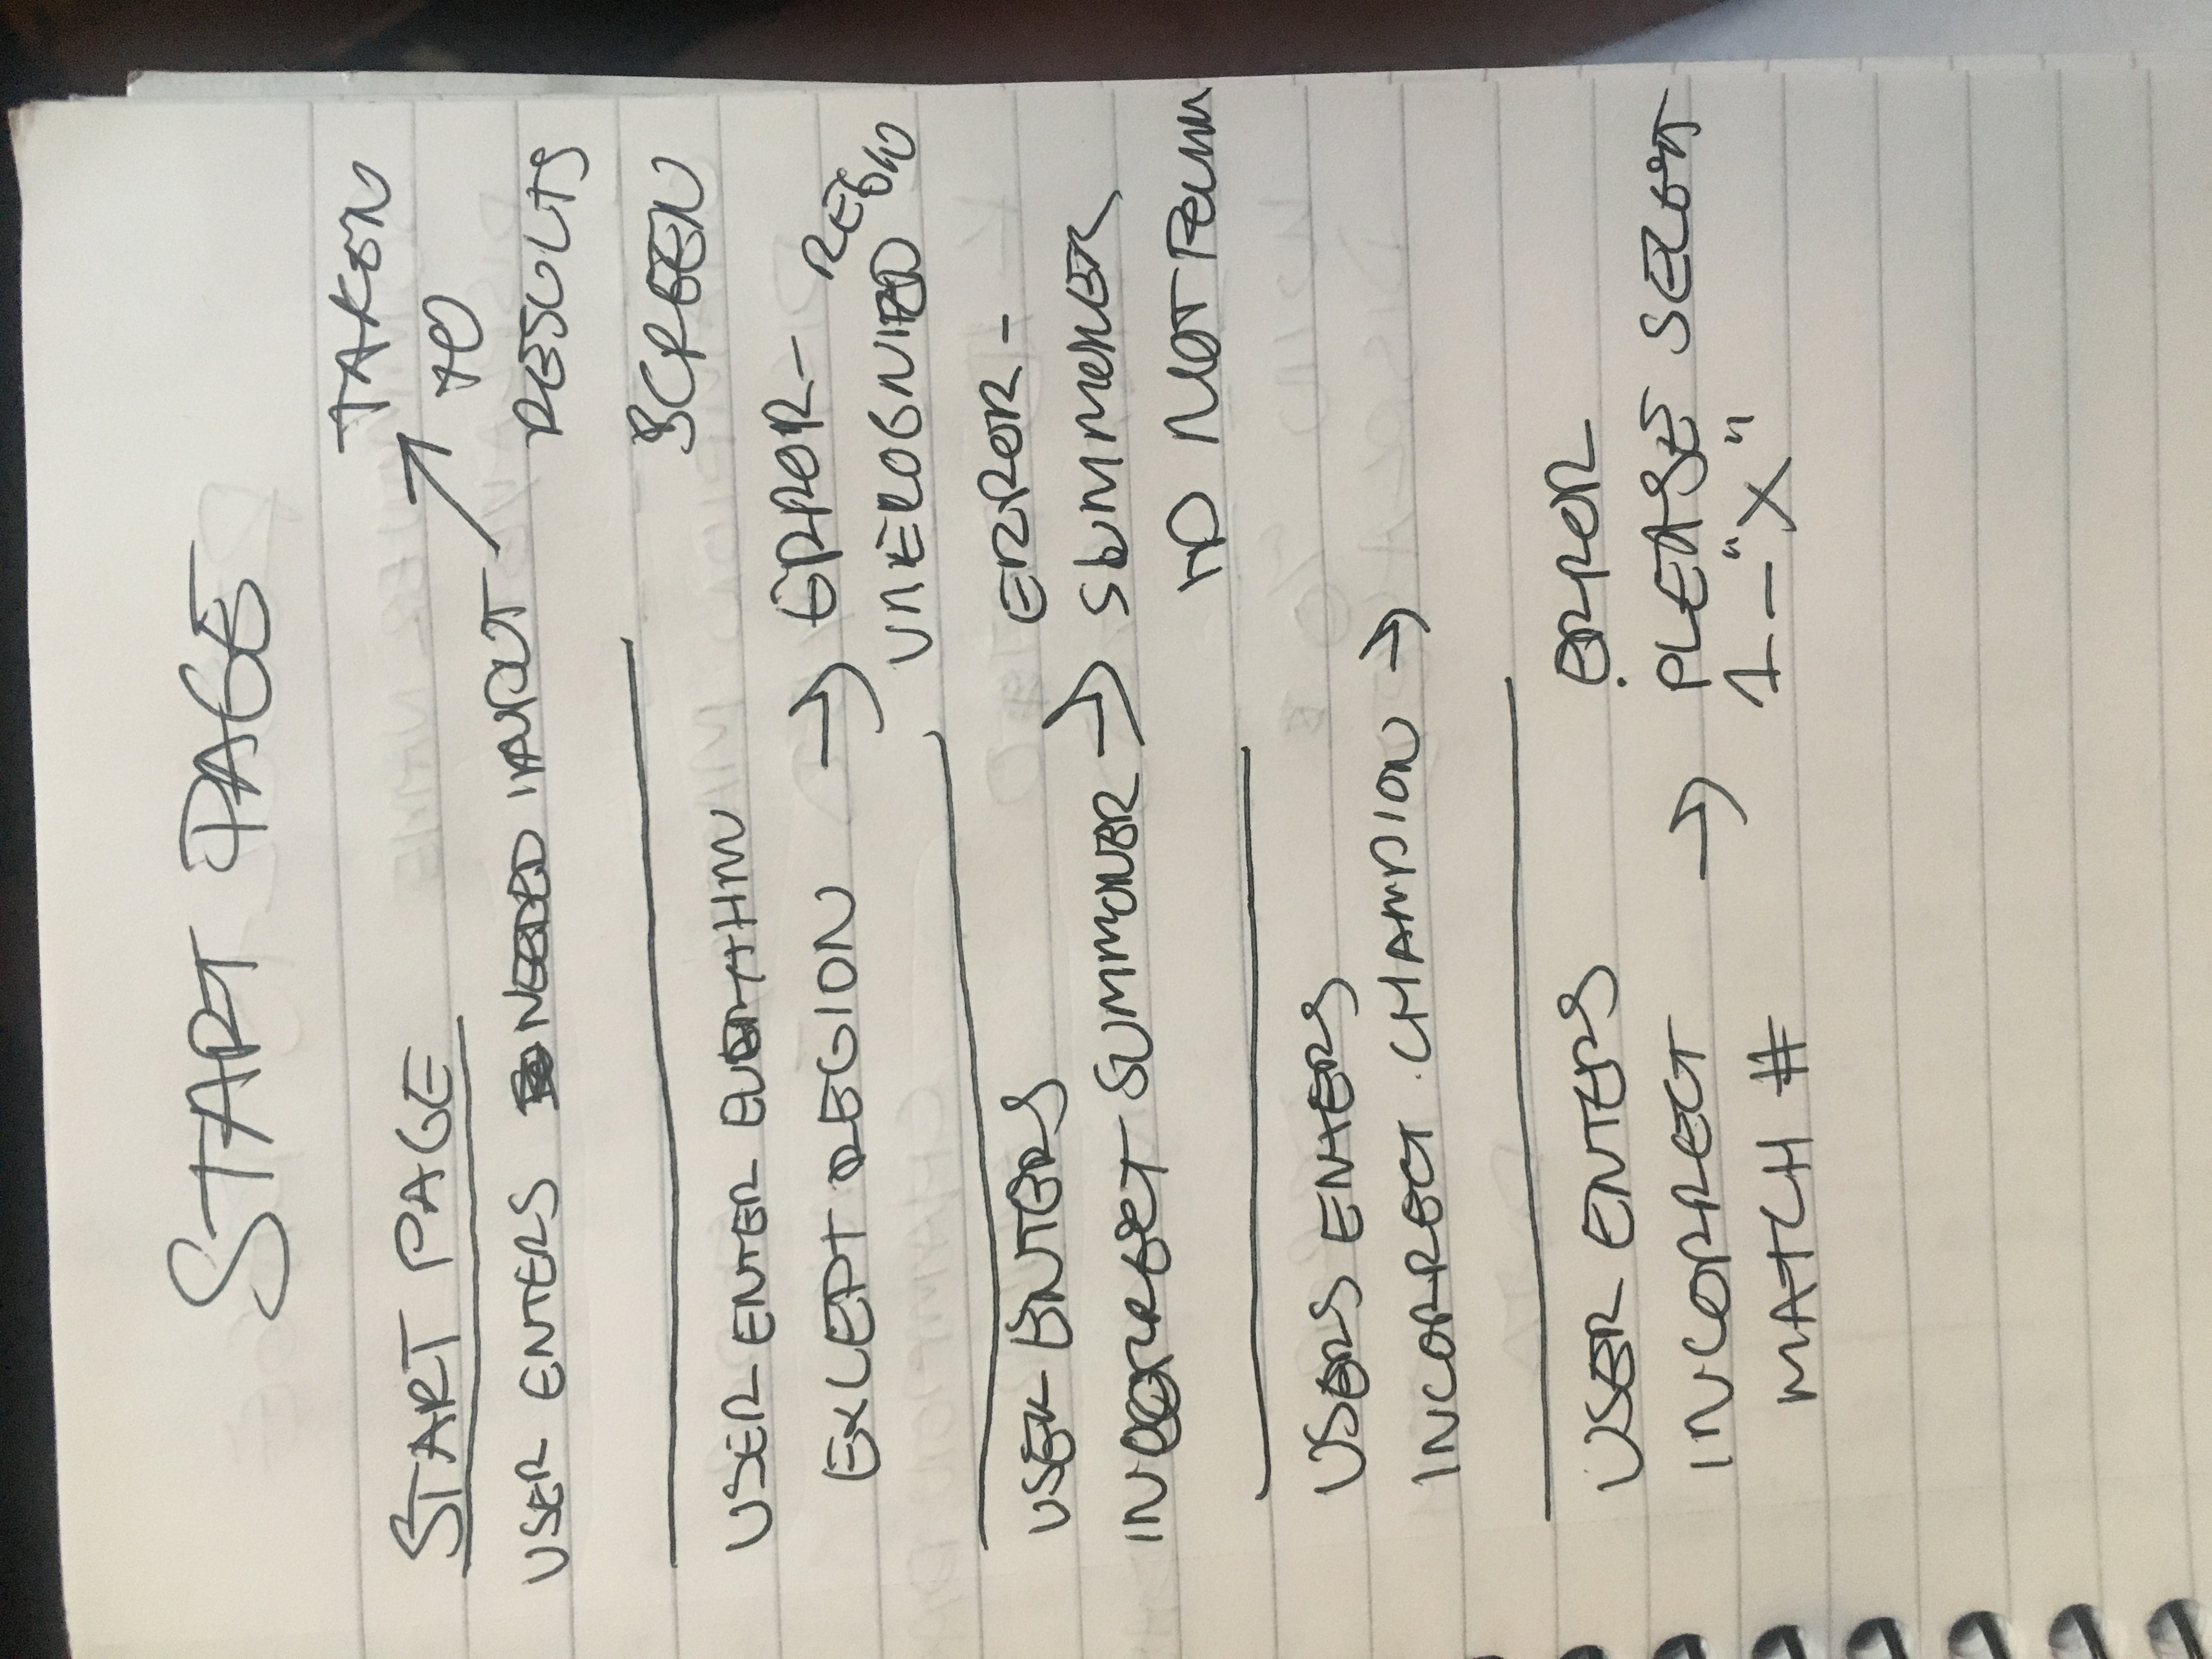 START PAGE
START PAGE
USER ENTERS NEEDED INPUT → TAKEN
TO
RESULTS
SCREEN
USER ENTER
EXCEPT REGION → ERROR -
REGION
USER ENTERS
INCORRECT SUMMONER → ERROR -
SUMMONER
NOT
USERS ENTERS
INCORRECT CHAMPION →
USER ENTERS
INCORRECT
MATCH # → ERROR
PLEASE SELECT
1 - "X"